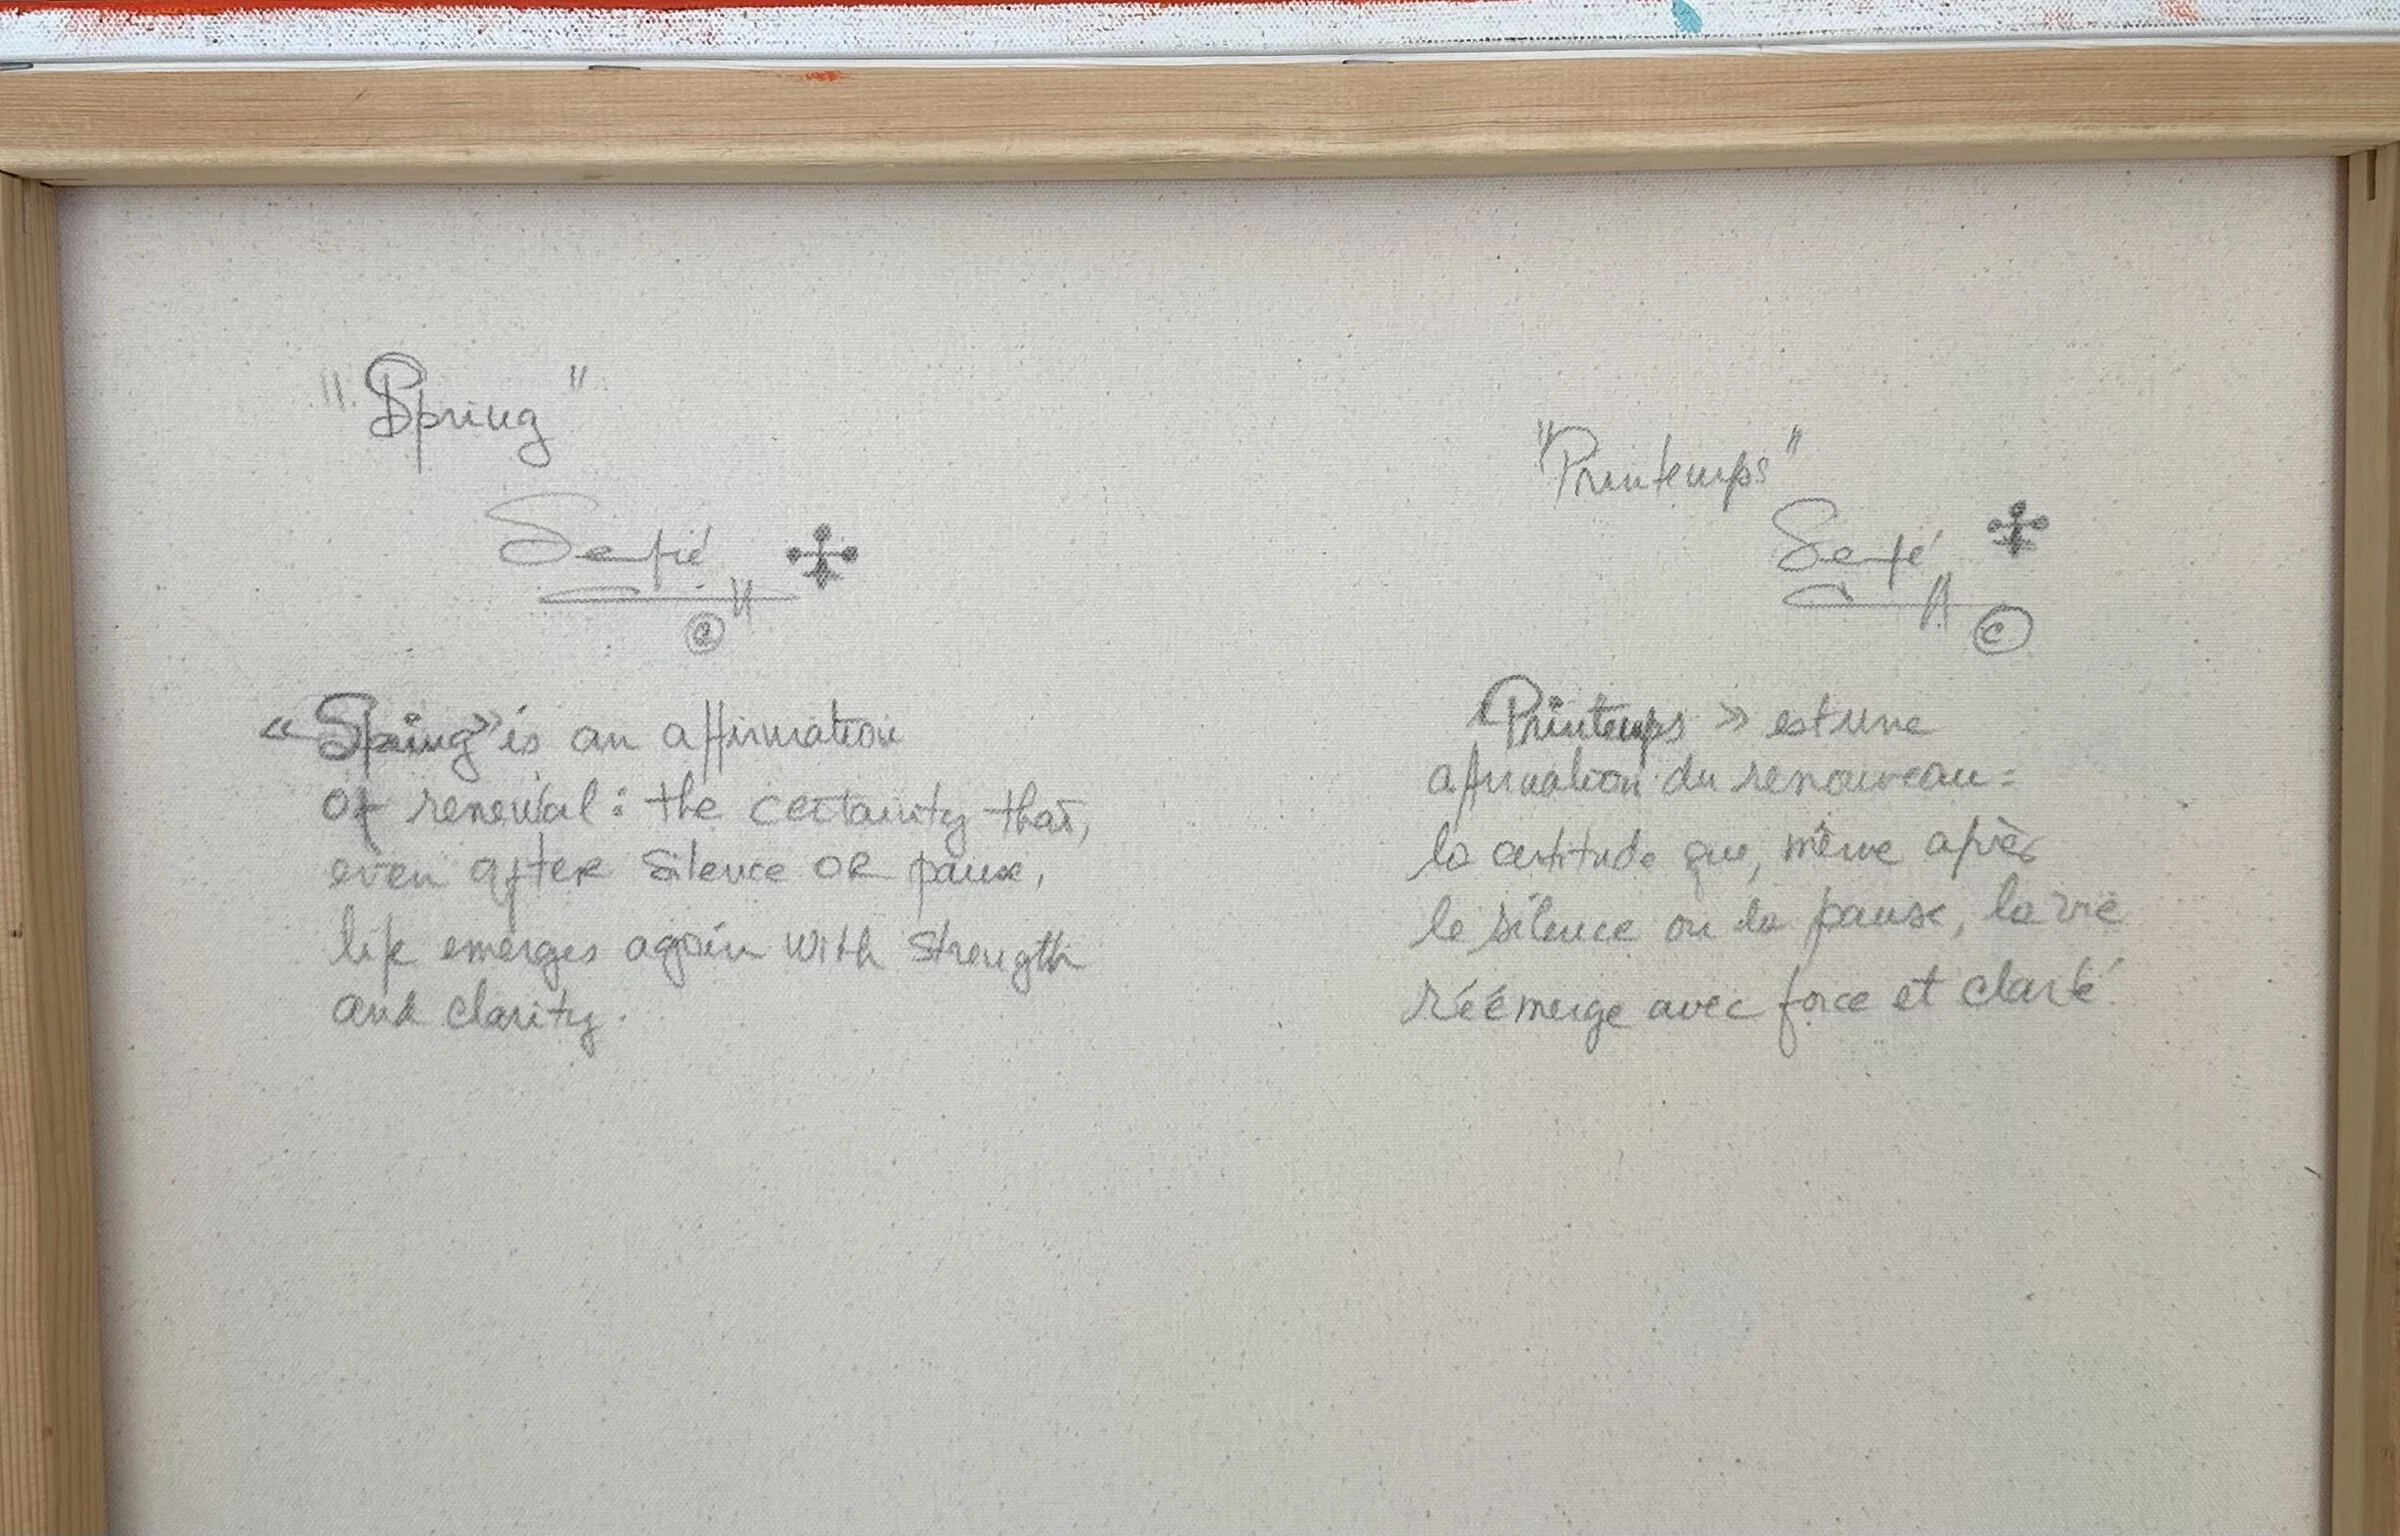 "Spring"
Sefié
©
«Spring» is an affirmation
of renewal: the certainty that,
even after silence or pause,
life emerges again with strength
and clarity.
"Printemps"
Sefié
©
Printemps » est une
affirmation du renouveau :
la certitude que, même après
le silence ou la pause, la vie
réémerge avec force et clarté